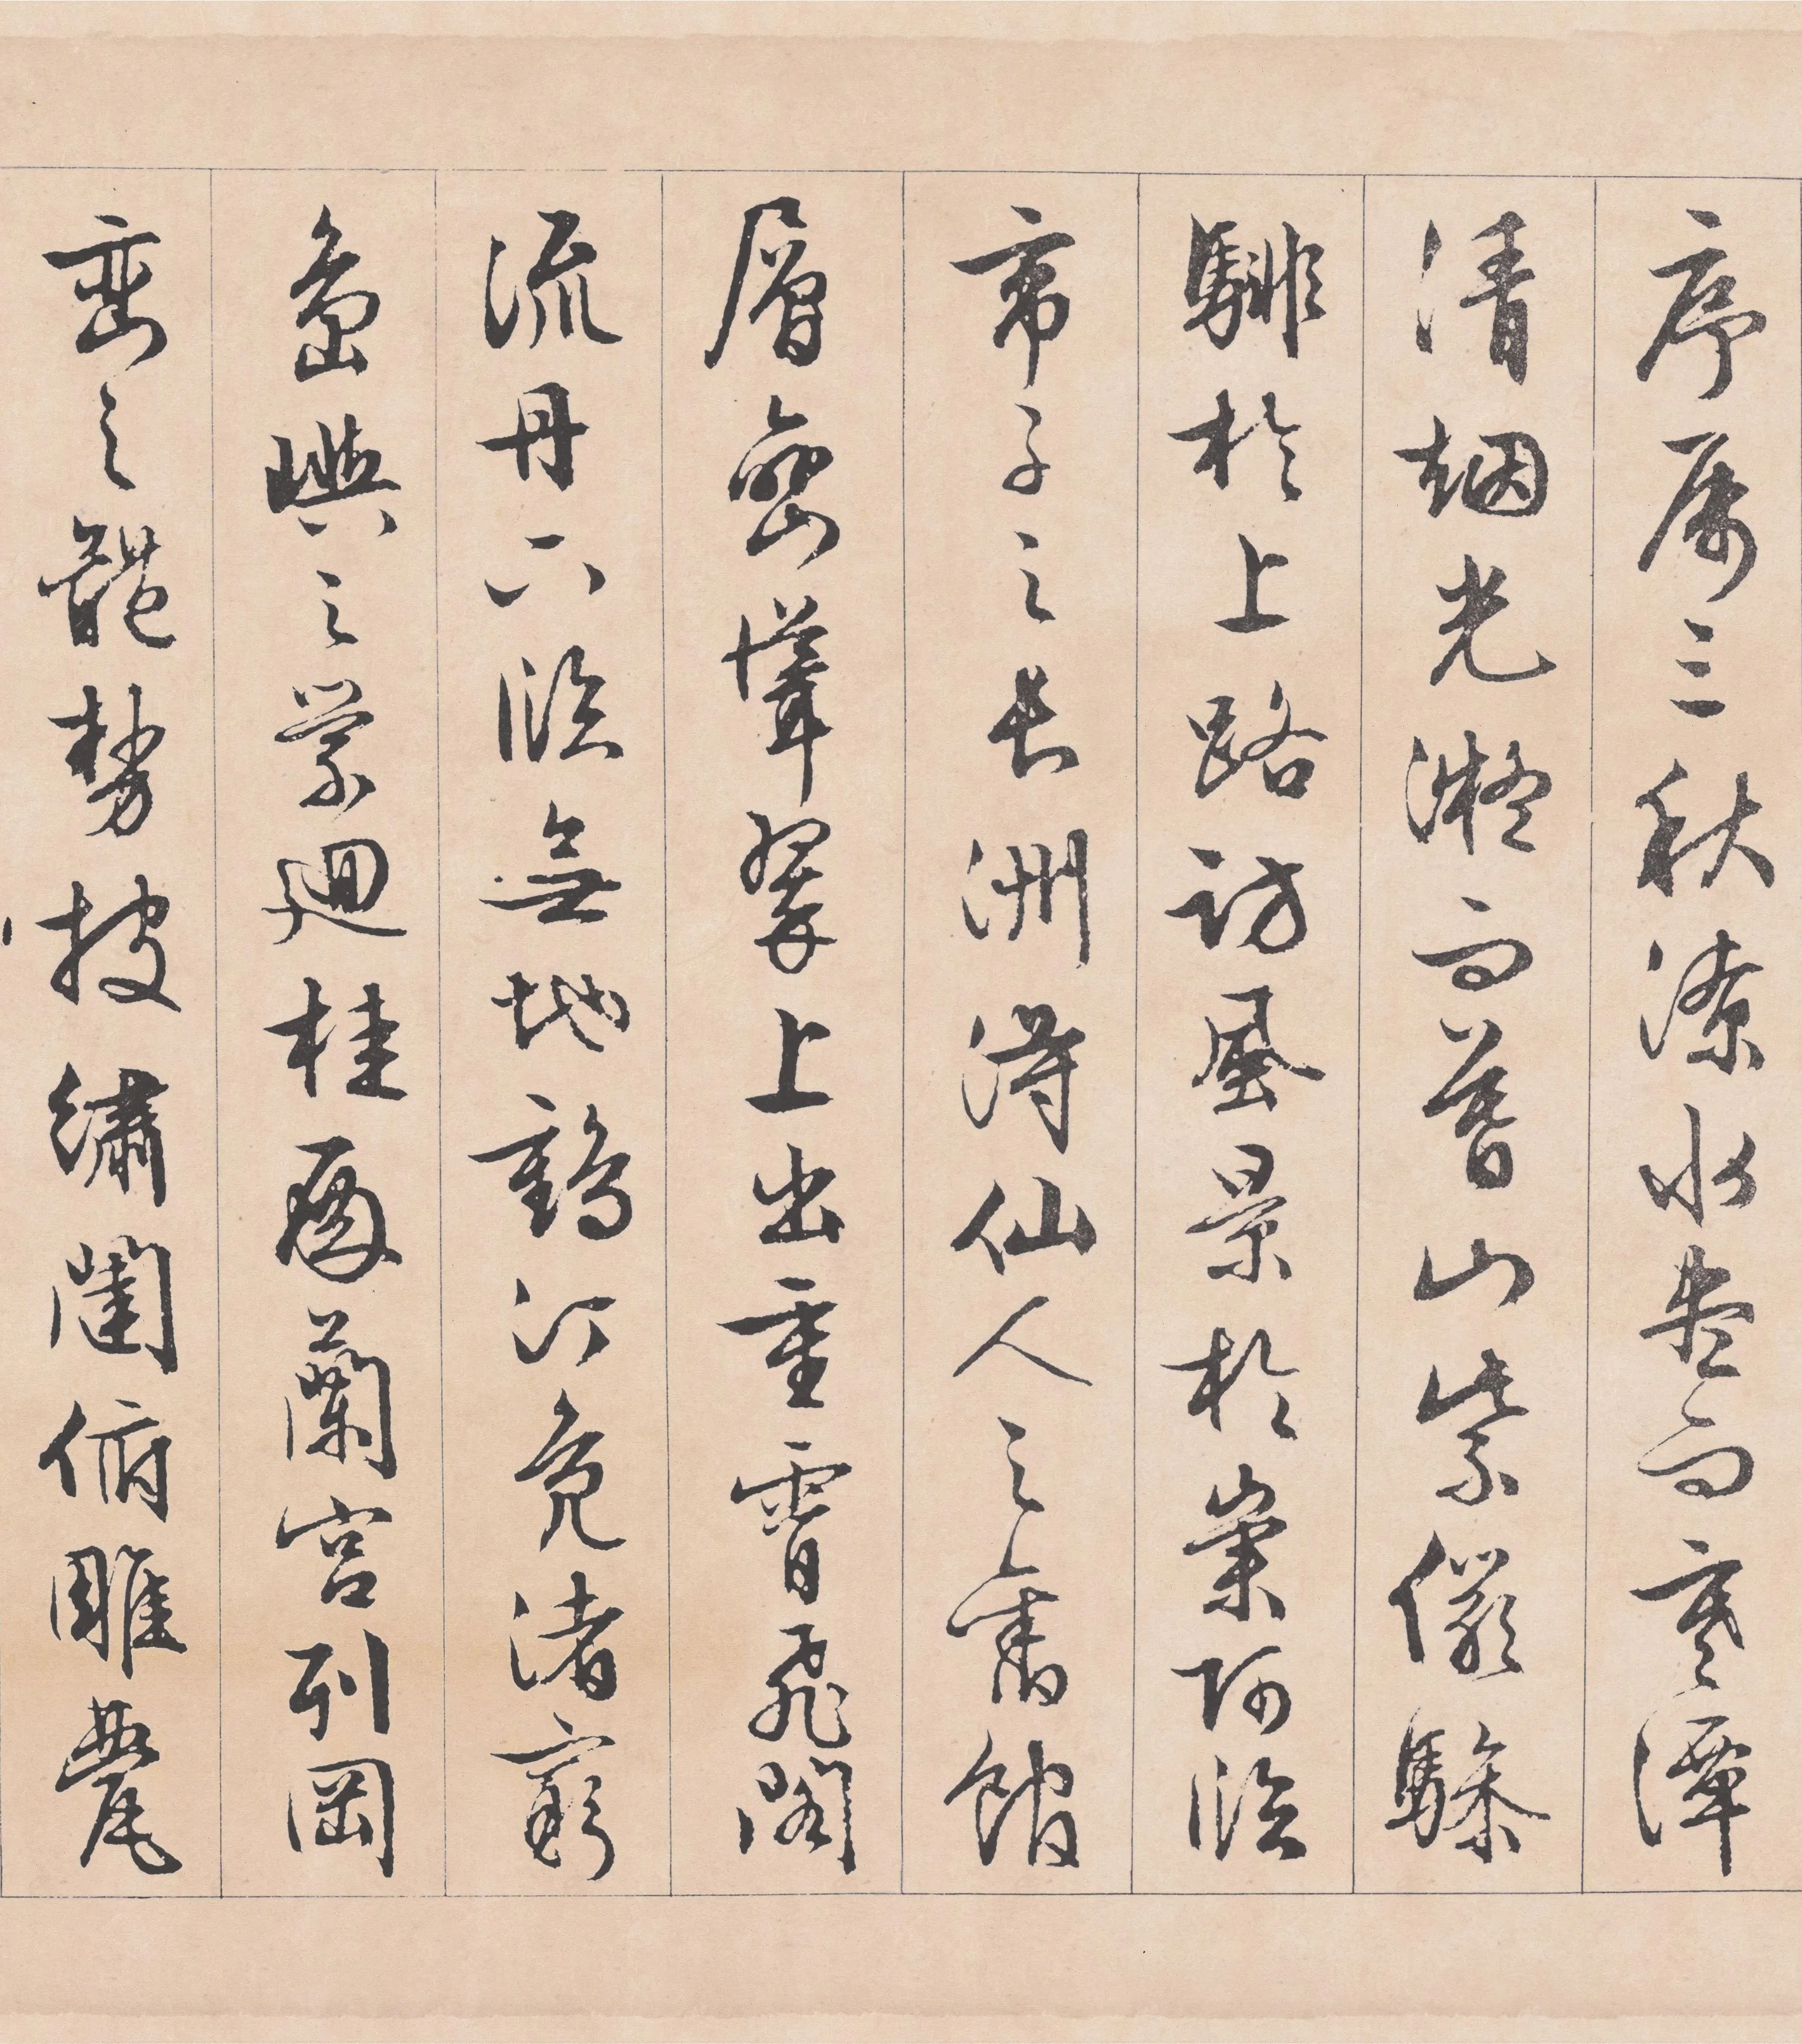 序属三秋潦水盡而寒潭
清烟光凝而暮山紫儼驂
騑於上路訪風景於崇阿臨
帝子之長洲得仙人之舊館
層巒聳翠上出重霄飛閣
流丹下臨無地鶴汀鳧渚窮
島嶼之縈迴桂殿蘭宮列岡
巒之體勢披繡闥俯雕甍